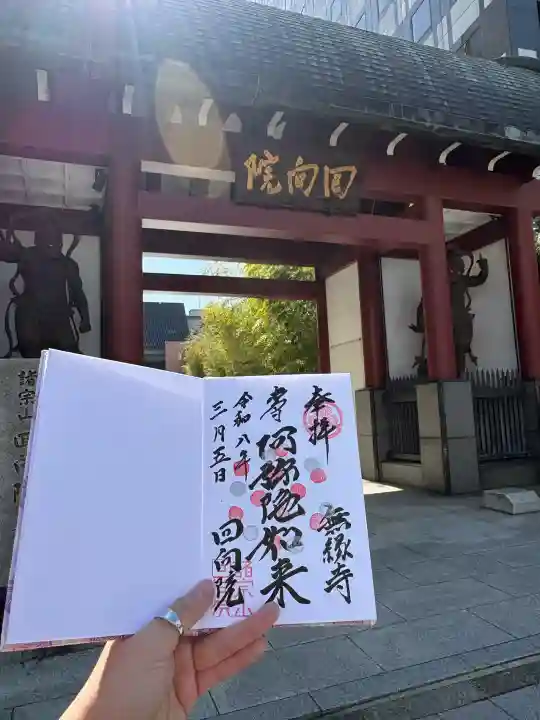 回向院
諸宗山 回向院
奉拝
無縁寺
尊 阿弥陀如来
令和八年
三月五日
回向院